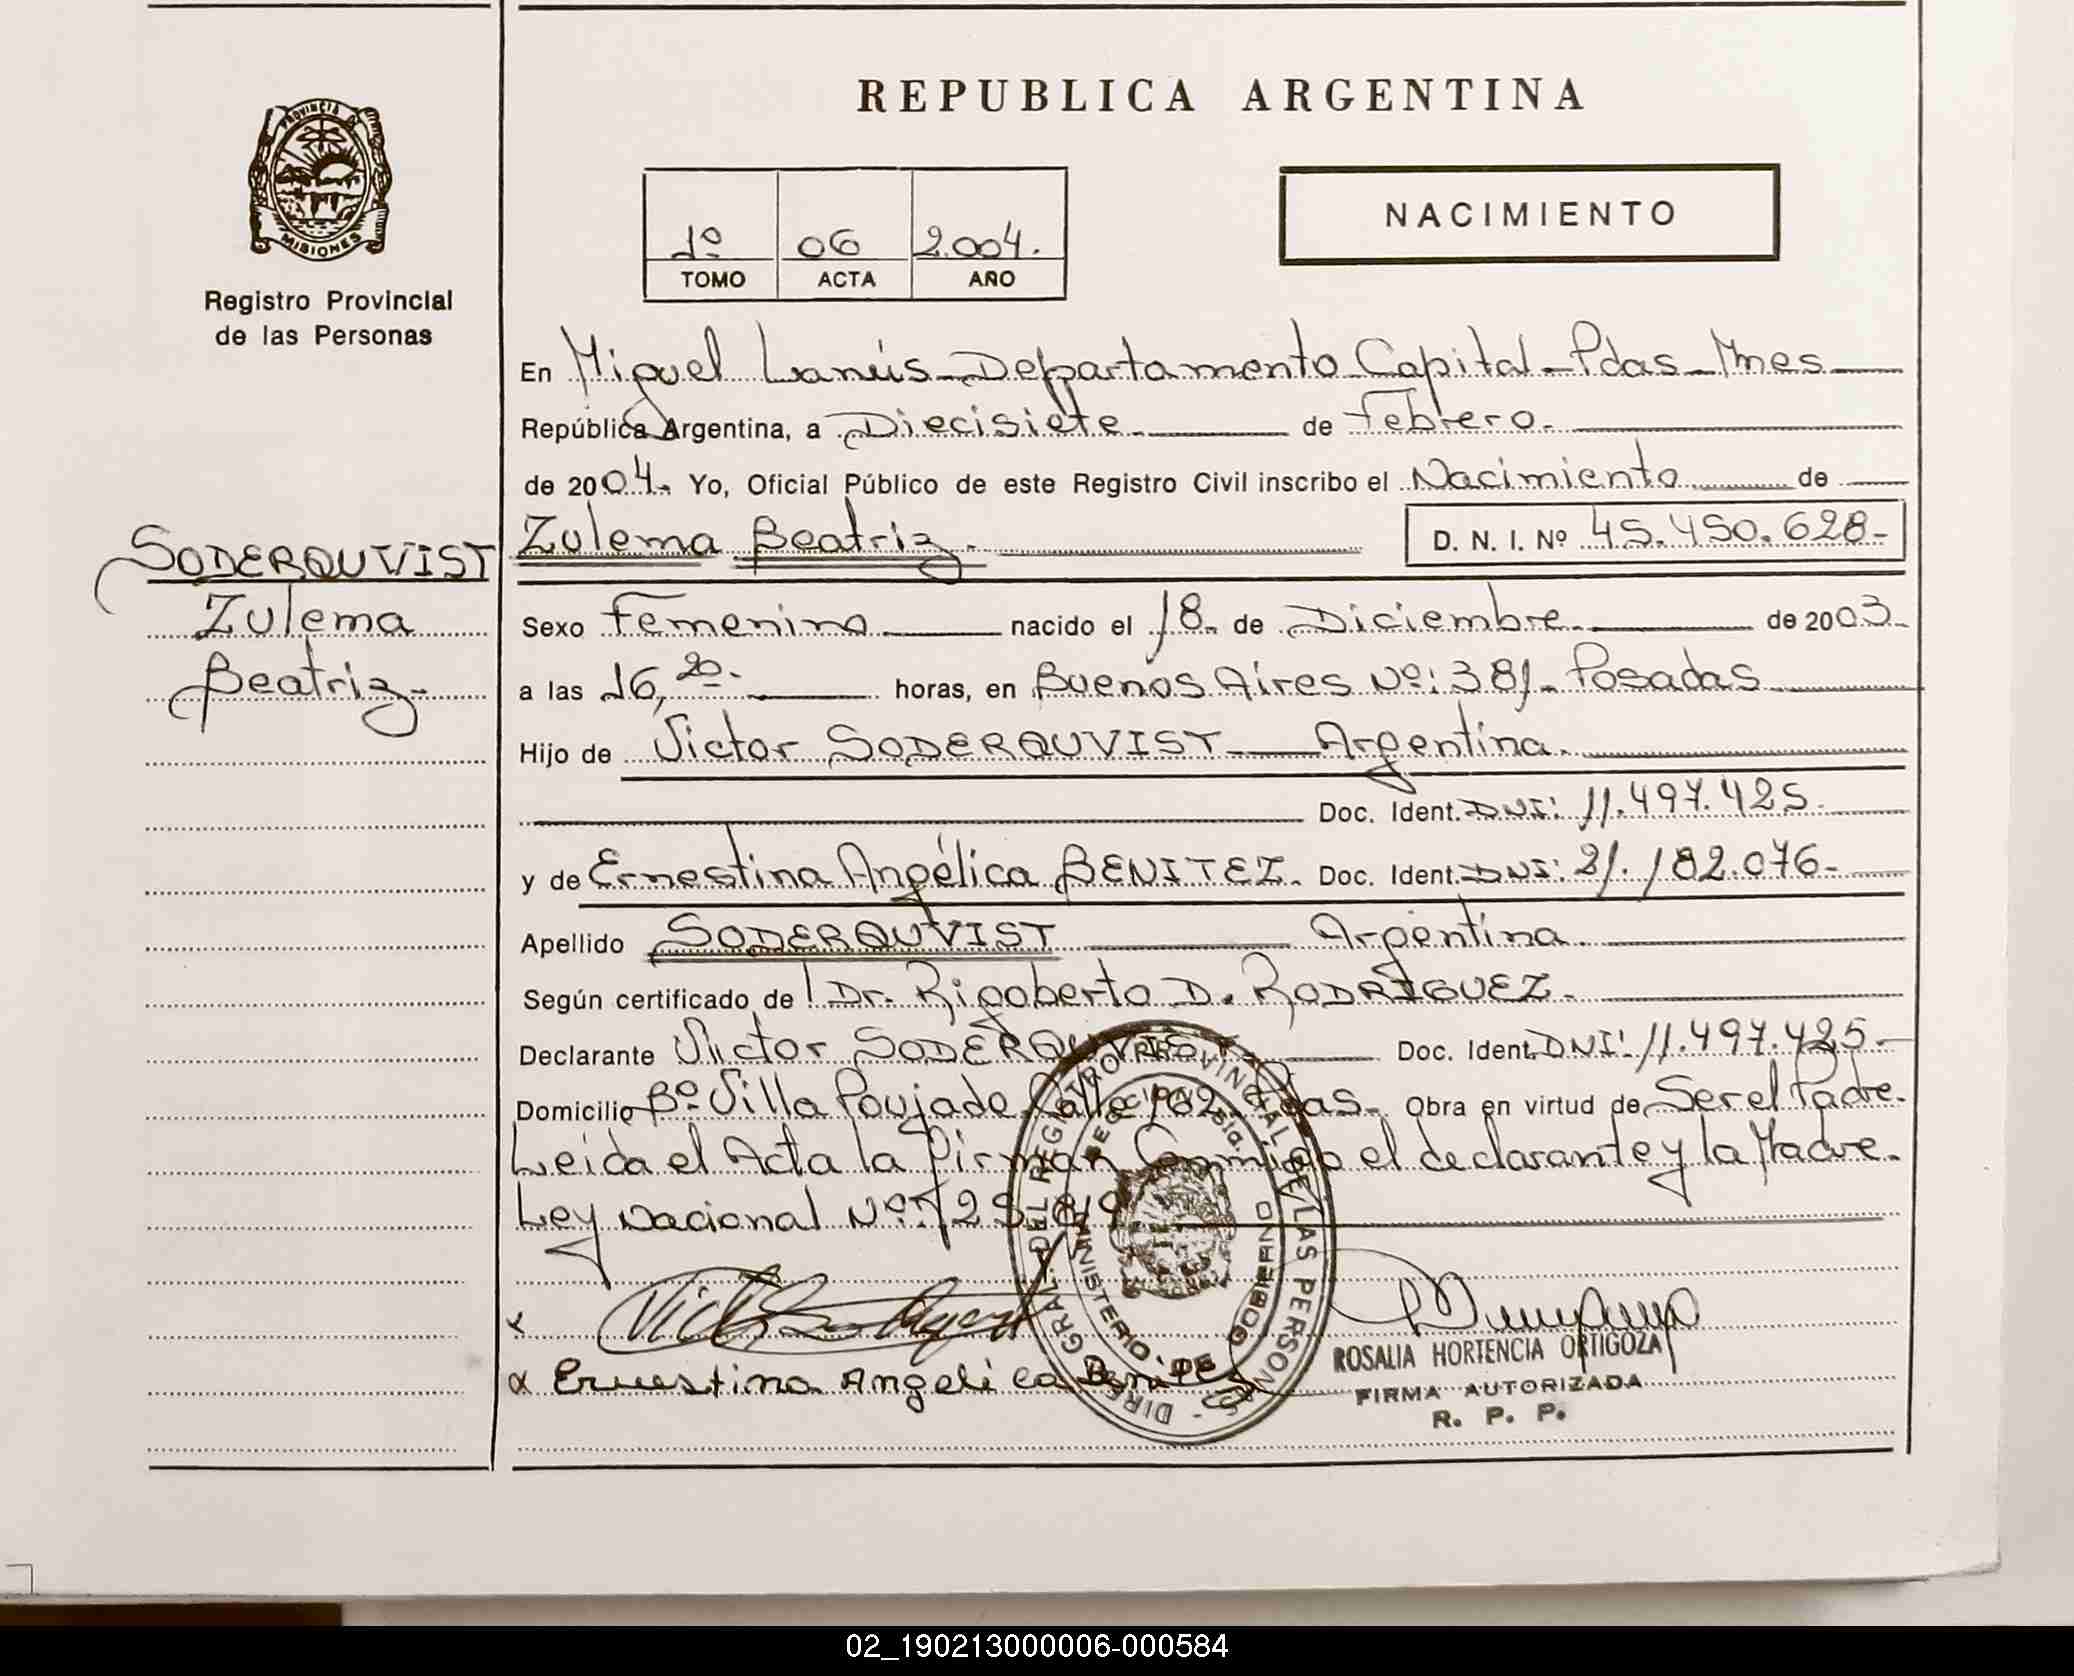 REPUBLICA ARGENTINA
PROVINCIA DE
MISIONES
Registro Provincial
de las Personas
1º 06 2.004.
TOMO ACTA AÑO
NACIMIENTO
En Miguel Lanús - Departamento Capital - Pdas - Mnes
República Argentina, a Diecisiete de Febrero.
de 2004. Yo, Oficial Público de este Registro Civil inscribo el Nacimiento de
SODERQUVIST
Zulema
Beatriz.
Zulema Beatriz. D. N. I. Nº 45.450.628-
Sexo Femenino nacido el 18 de Diciembre. de 2003
a las 16,20. horas, en Buenos Aires Nº: 381 - Posadas
Hijo de Victor SODERQUVIST Argentina.
Doc. Ident. DNI: 11.497.425.
y de Ernestina Angélica BENITEZ. Doc. Ident. DNI: 21.182.076-
Apellido SODERQUVIST Argentina
Según certificado de Dr. Rigoberto D. RODRIGUEZ.
Declarante Victor SODERQUVIST. Doc. Ident. DNI: 11.497.425-
Domicilio Bº Villa Poujade Calle 162 Pdas. Obra en virtud de Ser el Padre.
Leida el Acta la firman Conmigo el declarante y la Madre.
Ley Nacional Nº: 25.819
DIREC. GRAL. DEL REGISTRO PROVINCIAL DE LAS PERSONAS
MINISTERIO DE GOBIERNO
x
x Ernestina Angelica Benitez
ROSALIA HORTENCIA ORTIGOZA
FIRMA AUTORIZADA
R. P. P.
02_190213000006-000584